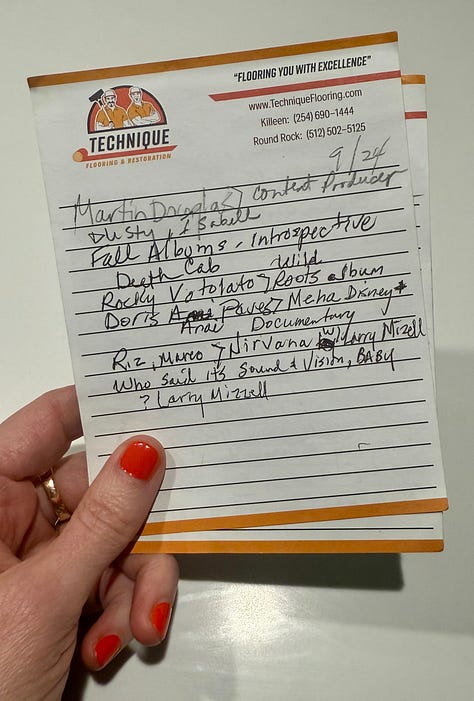 "FLOORING YOU WITH EXCELLENCE"
www.TechniqueFlooring.com
Killeen: (254) 690-1444
Round Rock: (512) 502-5125
TECHNIQUE
FLOORING & RESTORATION
9/24
Martin Douglas > Content Producer
Dusty & Isabell
Fall Albums - Introspective
Death Cab Wild
Rocky Votolato > Roots album
Doris Paves > Meha Disney
Anai Documentary
Riz, Marco > Nirvana Larry Mizell
Who said its Sound & Vision, BABY
? Larry Mizzell